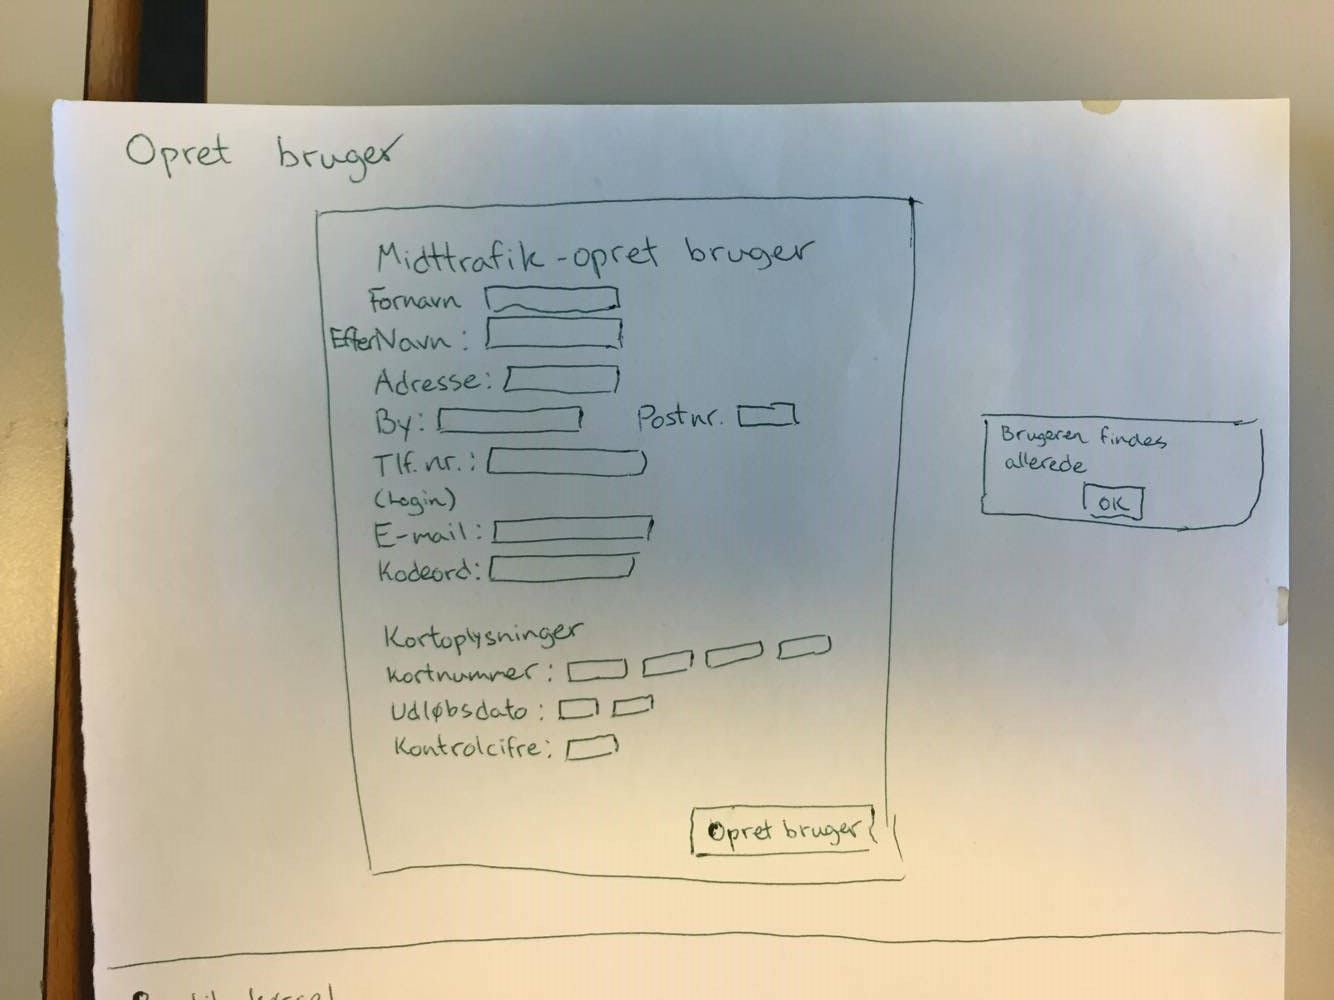 Opret bruger
Midttrafik - opret bruger
Fornavn
EfterNavn:
Adresse:
By: Postnr.
Tlf. nr.:
(Login)
E-mail:
Kodeord:
Kortoplysninger
Kortnummer:
Udløbsdato:
Kontrolcifre:
Opret bruger
Brugeren findes
allerede
OK